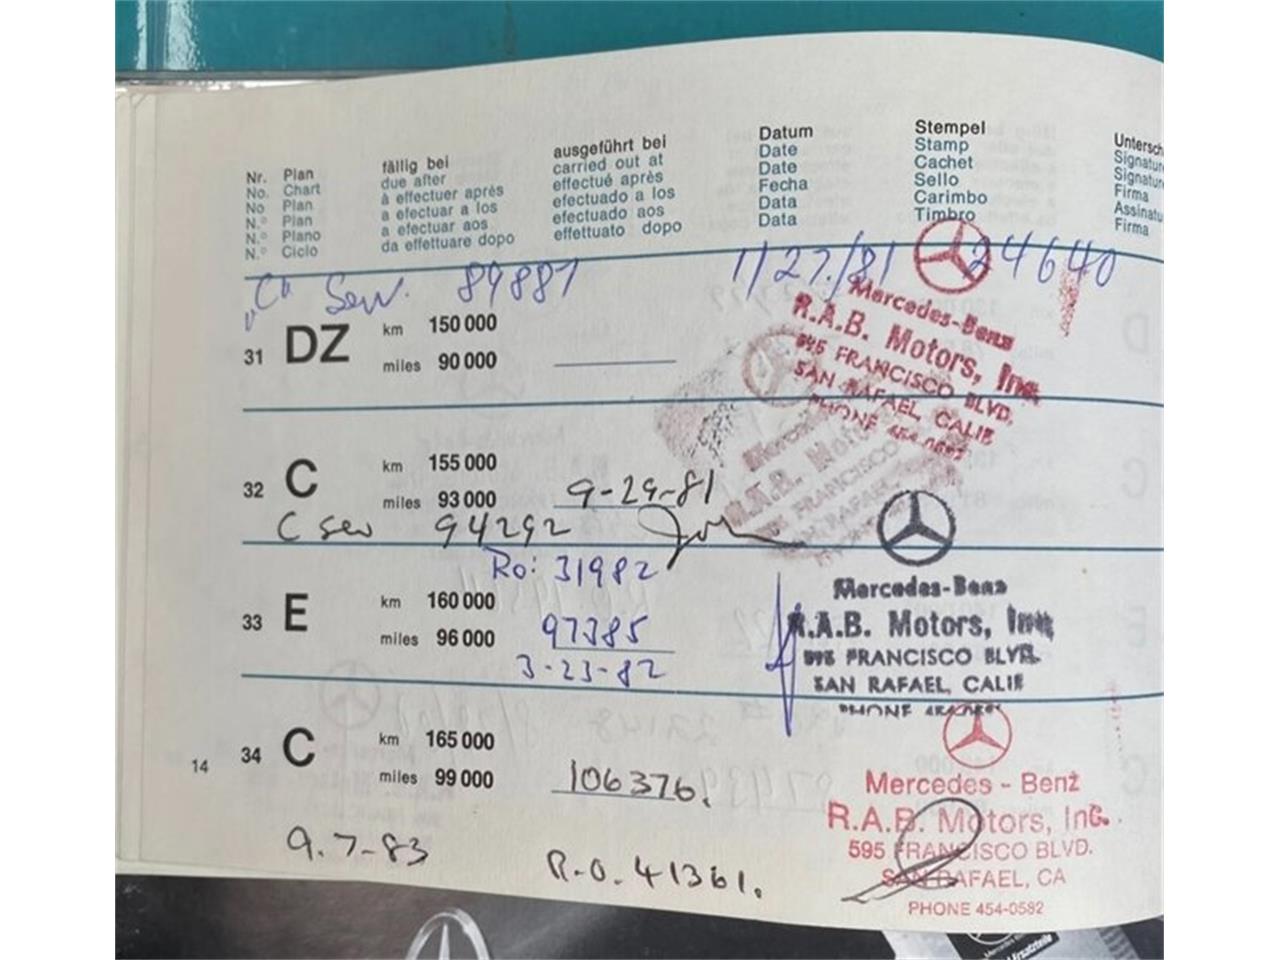 Nr. Plan fällig bei ausgeführt bei Datum Stempel
No. Chart due after carried out at Date Stamp Signature
No Plan à effectuer après effectué après Date Cachet Signature
N.º Plan a efectuar a los efectuado a los Fecha Sello Firma
N.º Plano a efectuar aos efectuado aos Data Carimbo
N.º Ciclo da effettuare dopo effettuato dopo Data Timbro Firma
"C" Serv. 89887 1/27/81 24640
31 DZ km 150 000
miles 90 000
Mercedes-Benz
R.A.B. Motors, Inc.
595 FRANCISCO BLVD.
SAN RAFAEL, CALIF
PHONE 454-0582
Mercedes
R.A.B. Motors
595 FRANCISCO
SAN RAFAEL
32 C km 155 000
miles 93 000 9-29-81
C sev 94292
Ro: 31982
33 E km 160 000
miles 96 000 97385
3-23-82
Mercedes-Benz
R.A.B. Motors, Inc.
595 FRANCISCO BLVD.
SAN RAFAEL, CALIF
PHONE 454-0582
34 C km 165 000
miles 99 000 106376.
9.7-83 R.O. 41361.
Mercedes - Benz
R.A.B. Motors, Inc.
595 FRANCISCO BLVD.
SAN RAFAEL, CA
PHONE 454-0582
14